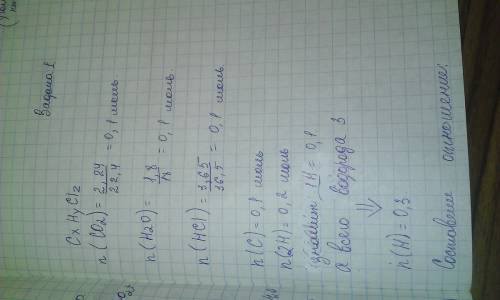 Задача 1
CxHyClz
n(CO2) = 2,24/22,4 = 0,1 моль
n(H2O) = 1,8/18 = 0,1 моль
n(HCl) = 3,65/36,5 = 0,1 моль
n(C) = 0,1 моль
n(2H) = 0,2 моль
значит 1H = 0,1
а всего водорода 3
⇓
n(H) = 0,3
Составляем отношение: